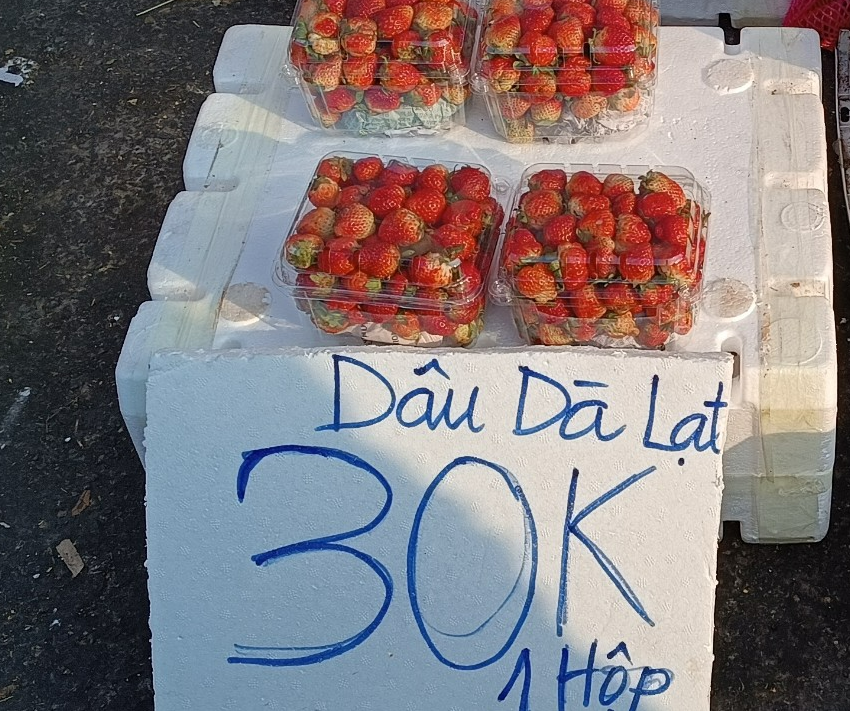 Dâu Dā Lạt
30K
1 Hộp